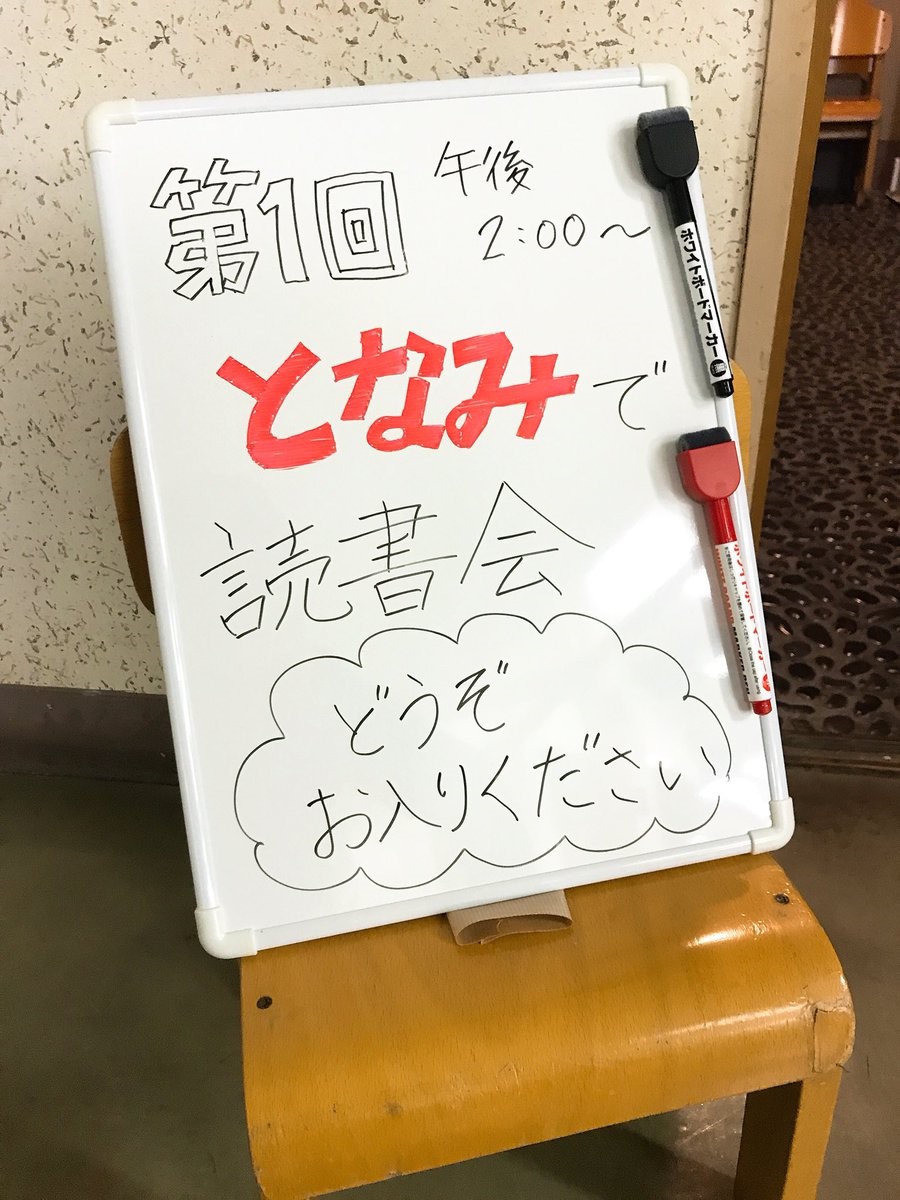 第1回
午後
2:00〜
となみで
読書会
どうぞ
お入りください
ホワイトボードマーカー
ホワイトボードマーカー
WHITE BOARD MARKER